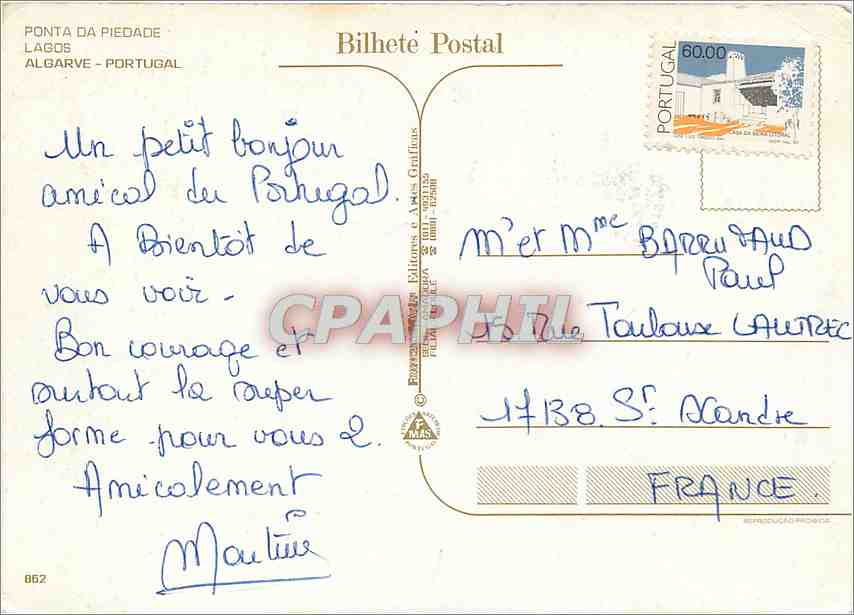 PONTA DA PIEDADE
LAGOS
ALGARVE - PORTUGAL
Bilhete Postal
PORTUGAL
60.00
CASA DA BEIRA LITORAL
Un petit bonjour
amical du Portugal.
A Bientôt de
vous voir -
Bon courage et
surtout la super
forme pour vous 2.
Amicalement
Martine
862
Editores e Artes Gráficas
CPAPHIL
©
PORTUGAL
Mr et Mme BARRITAUD
Paul
15 Rue Toulouse LAUTREC
17138. St. Xandre
FRANCE.
REPRODUÇÃO PROIBIDA